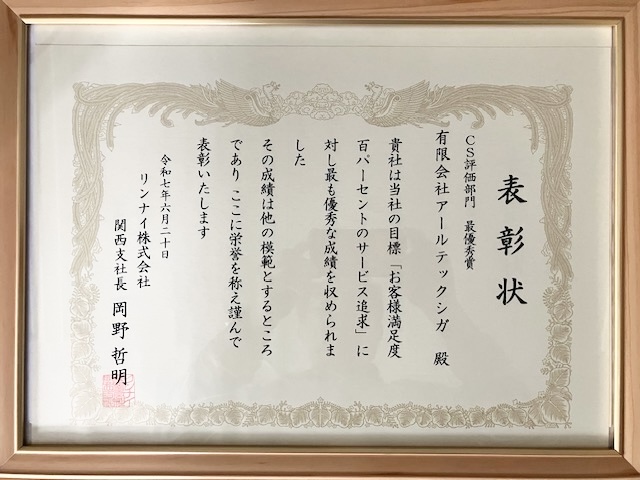 表彰状
CS評価部門 最優秀賞
有限会社アールテックシガ 殿
貴社は当社の目標「お客様満足度
百パーセントのサービス追求」に
対し最も優秀な成績を収められま
した
その成績は他の模範とするところ
であり ここに栄誉を称え謹んで
表彰いたします
令和七年六月二十日
リンナイ株式会社
関西支社長 岡野哲明